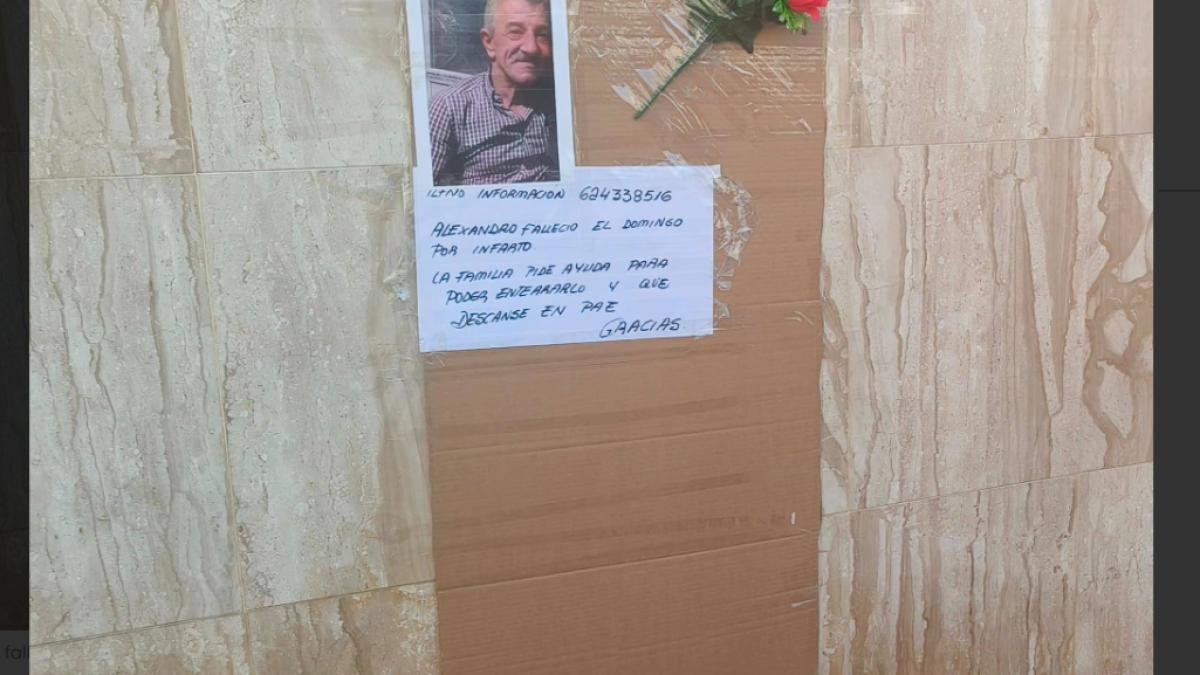 INFORMACION 624338516
ALEXANDRO FALLECIO EL DOMINGO
POR INFARTO
LA FAMILIA PIDE AYUDA PARA
PODER ENTERRARLO Y QUE
DESCANSE EN PAZ
GRACIAS
fall